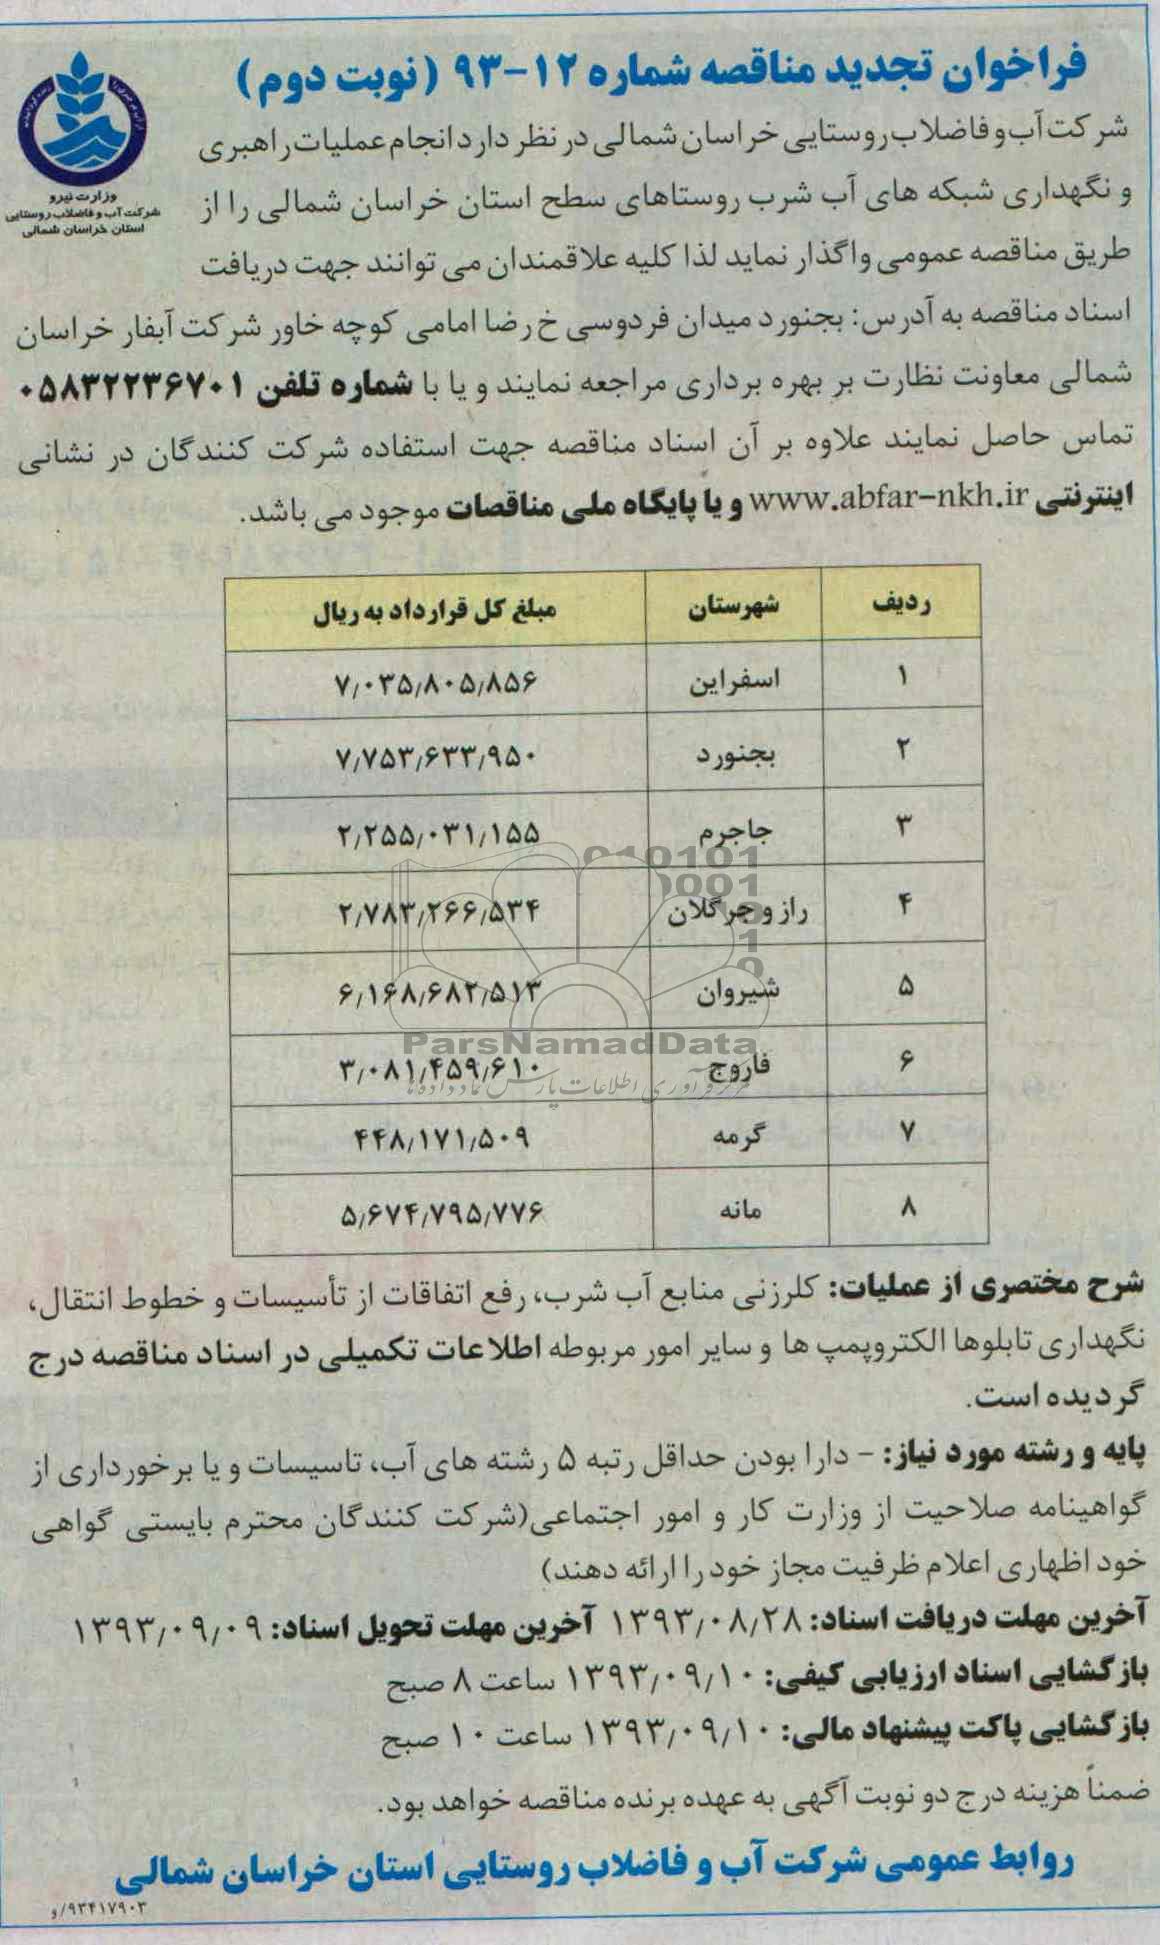 فراخوان تجدید مناقصه شماره ۱۲-۹۳ (نوبت دوم)
وزارت نیرو
شرکت آب و فاضلاب روستایی
استان خراسان شمالی
شرکت آب و فاضلاب روستایی خراسان شمالی در نظر دارد انجام عملیات راهبری
و نگهداری شبکه های آب شرب روستاهای سطح استان خراسان شمالی را از
طریق مناقصه عمومی واگذار نماید لذا کلیه علاقمندان می توانند جهت دریافت
اسناد مناقصه به آدرس: بجنورد میدان فردوسی خ رضا امامی کوچه خاور شرکت آبفار خراسان
شمالی معاونت نظارت بر بهره برداری مراجعه نمایند و یا با شماره تلفن ۰۵۸۳۲۲۳۶۷۰۱
تماس حاصل نمایند علاوه بر آن اسناد مناقصه جهت استفاده شرکت کنندگان در نشانی
اینترنتی www.abfar-nkh.ir و یا پایگاه ملی مناقصات موجود می باشد.
ردیف شهرستان مبلغ کل قرارداد به ریال
۱ اسفراین ۷/۰۳۵/۸۰۵/۸۵۶
۲ بجنورد ۷/۷۵۳/۶۳۳/۹۵۰
۳ جاجرم ۲/۲۵۵/۰۳۱/۱۵۵
۴ راز و جرگلان ۲/۷۸۳/۲۶۶/۵۳۴
۵ شیروان ۶/۱۶۸/۶۸۲/۵۱۳
۶ فاروج ۳/۰۸۱/۴۵۹/۶۱۰
۷ گرمه ۴۴۸/۱۷۱/۵۰۹
۸ مانه ۵/۶۷۴/۷۹۵/۷۷۶
010101
0001
ParsNamadData
مرکز فرآوری اطلاعات پارس نماد داده‌ها
شرح مختصری از عملیات: کلرزنی منابع آب شرب، رفع اتفاقات از تأسیسات و خطوط انتقال،
نگهداری تابلوها الکتروپمپ ها و سایر امور مربوطه اطلاعات تکمیلی در اسناد مناقصه درج
گردیده است.
پایه و رشته مورد نیاز: - دارا بودن حداقل رتبه ۵ رشته های آب، تاسیسات و یا برخورداری از
گواهینامه صلاحیت از وزارت کار و امور اجتماعی(شرکت کنندگان محترم بایستی گواهی
خود اظهاری اعلام ظرفیت مجاز خود را ارائه دهند)
آخرین مهلت دریافت اسناد: ۱۳۹۳/۰۸/۲۸ آخرین مهلت تحویل اسناد: ۱۳۹۳/۰۹/۰۹
بازگشایی اسناد ارزیابی کیفی: ۱۳۹۳/۰۹/۱۰ ساعت ۸ صبح
بازگشایی پاکت پیشنهاد مالی: ۱۳۹۳/۰۹/۱۰ ساعت ۱۰ صبح
ضمناً هزینه درج دو نوبت آگهی به عهده برنده مناقصه خواهد بود.
روابط عمومی شرکت آب و فاضلاب روستایی استان خراسان شمالی
۹۳۴۱۷۹۰۳/و